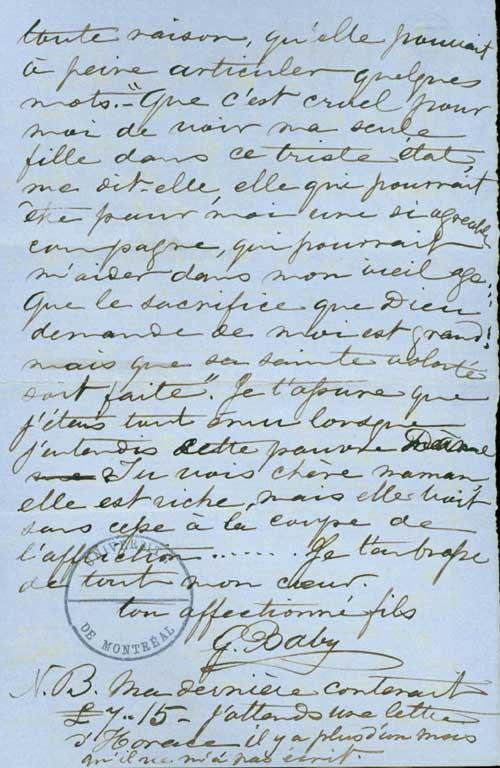 toute raison, qu'elle pouvait
à peine articuler quelques
mots. – "Que c'est cruel pour
moi de voir ma seule
fille dans ce triste état,
me dit-elle elle qui pourrait
être pour moi une si agréable
compagne, qui pourrait
m'aider dans mon vieil age.
Que le sacrifice que Dieu
demande de moi est grand!
mais que sa sainte volonté
soit faite". Je t'assure que
j'étais tout ému lorsque
j'entendis cette pauvre Dame
Tu vois chère maman
elle est riche, mais elle boit
sans cesse à la coupe de
l'affliction ....... Je t'embrasse
de tout mon cœur.
ton affectionné fils
G. Baby
UNIVERSITÉ
DE MONTRÉAL
N.B. Ma dernière contenait
£7.-15- J'attends une lettre
d'Horace il y a plus d'un mois
qu'il ne m'a pas écrit.